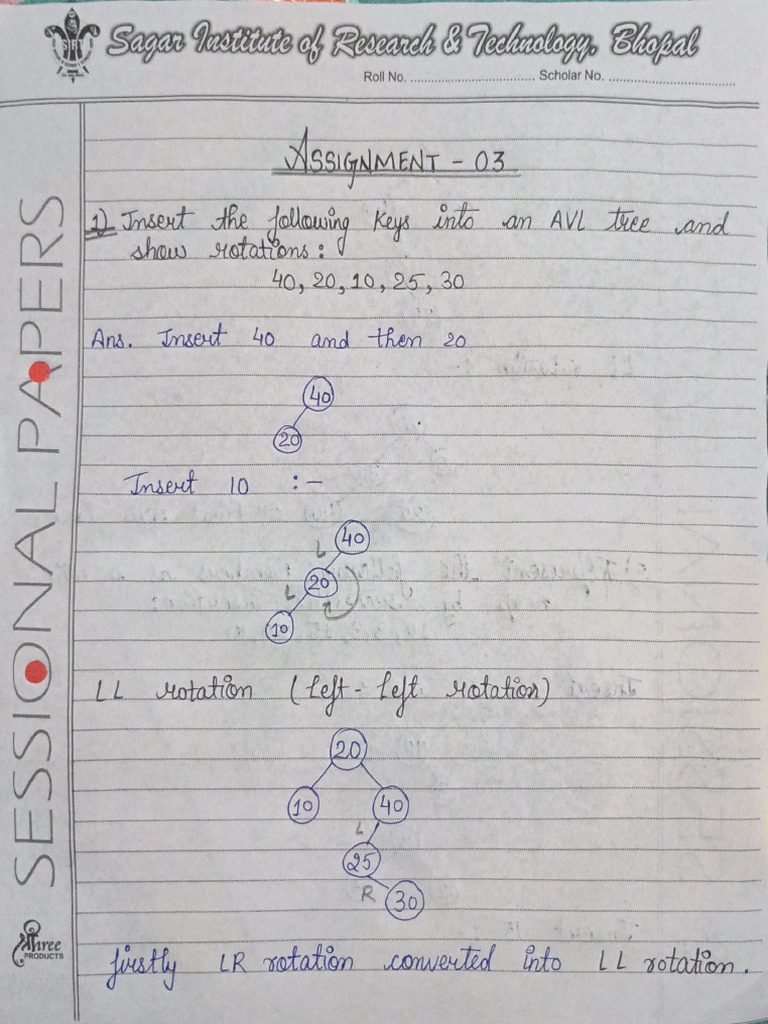 SIRT
Sagar Institute of Research & Technology, Bhopal
Roll No. ................................ Scholar No. ................................
ASSIGNMENT - 03
1) Insert the following Keys into an AVL tree and
show rotations:
40, 20, 10, 25, 30
Ans. Insert 40 and then 20
40
20
Insert 10 :-
40
L
20
L
10
LL rotation (Left - Left rotation)
20
10 40
L
25
R 30
firstly LR rotation converted into LL rotation.
SESSIONAL PAPERS
Shree
PRODUCTS